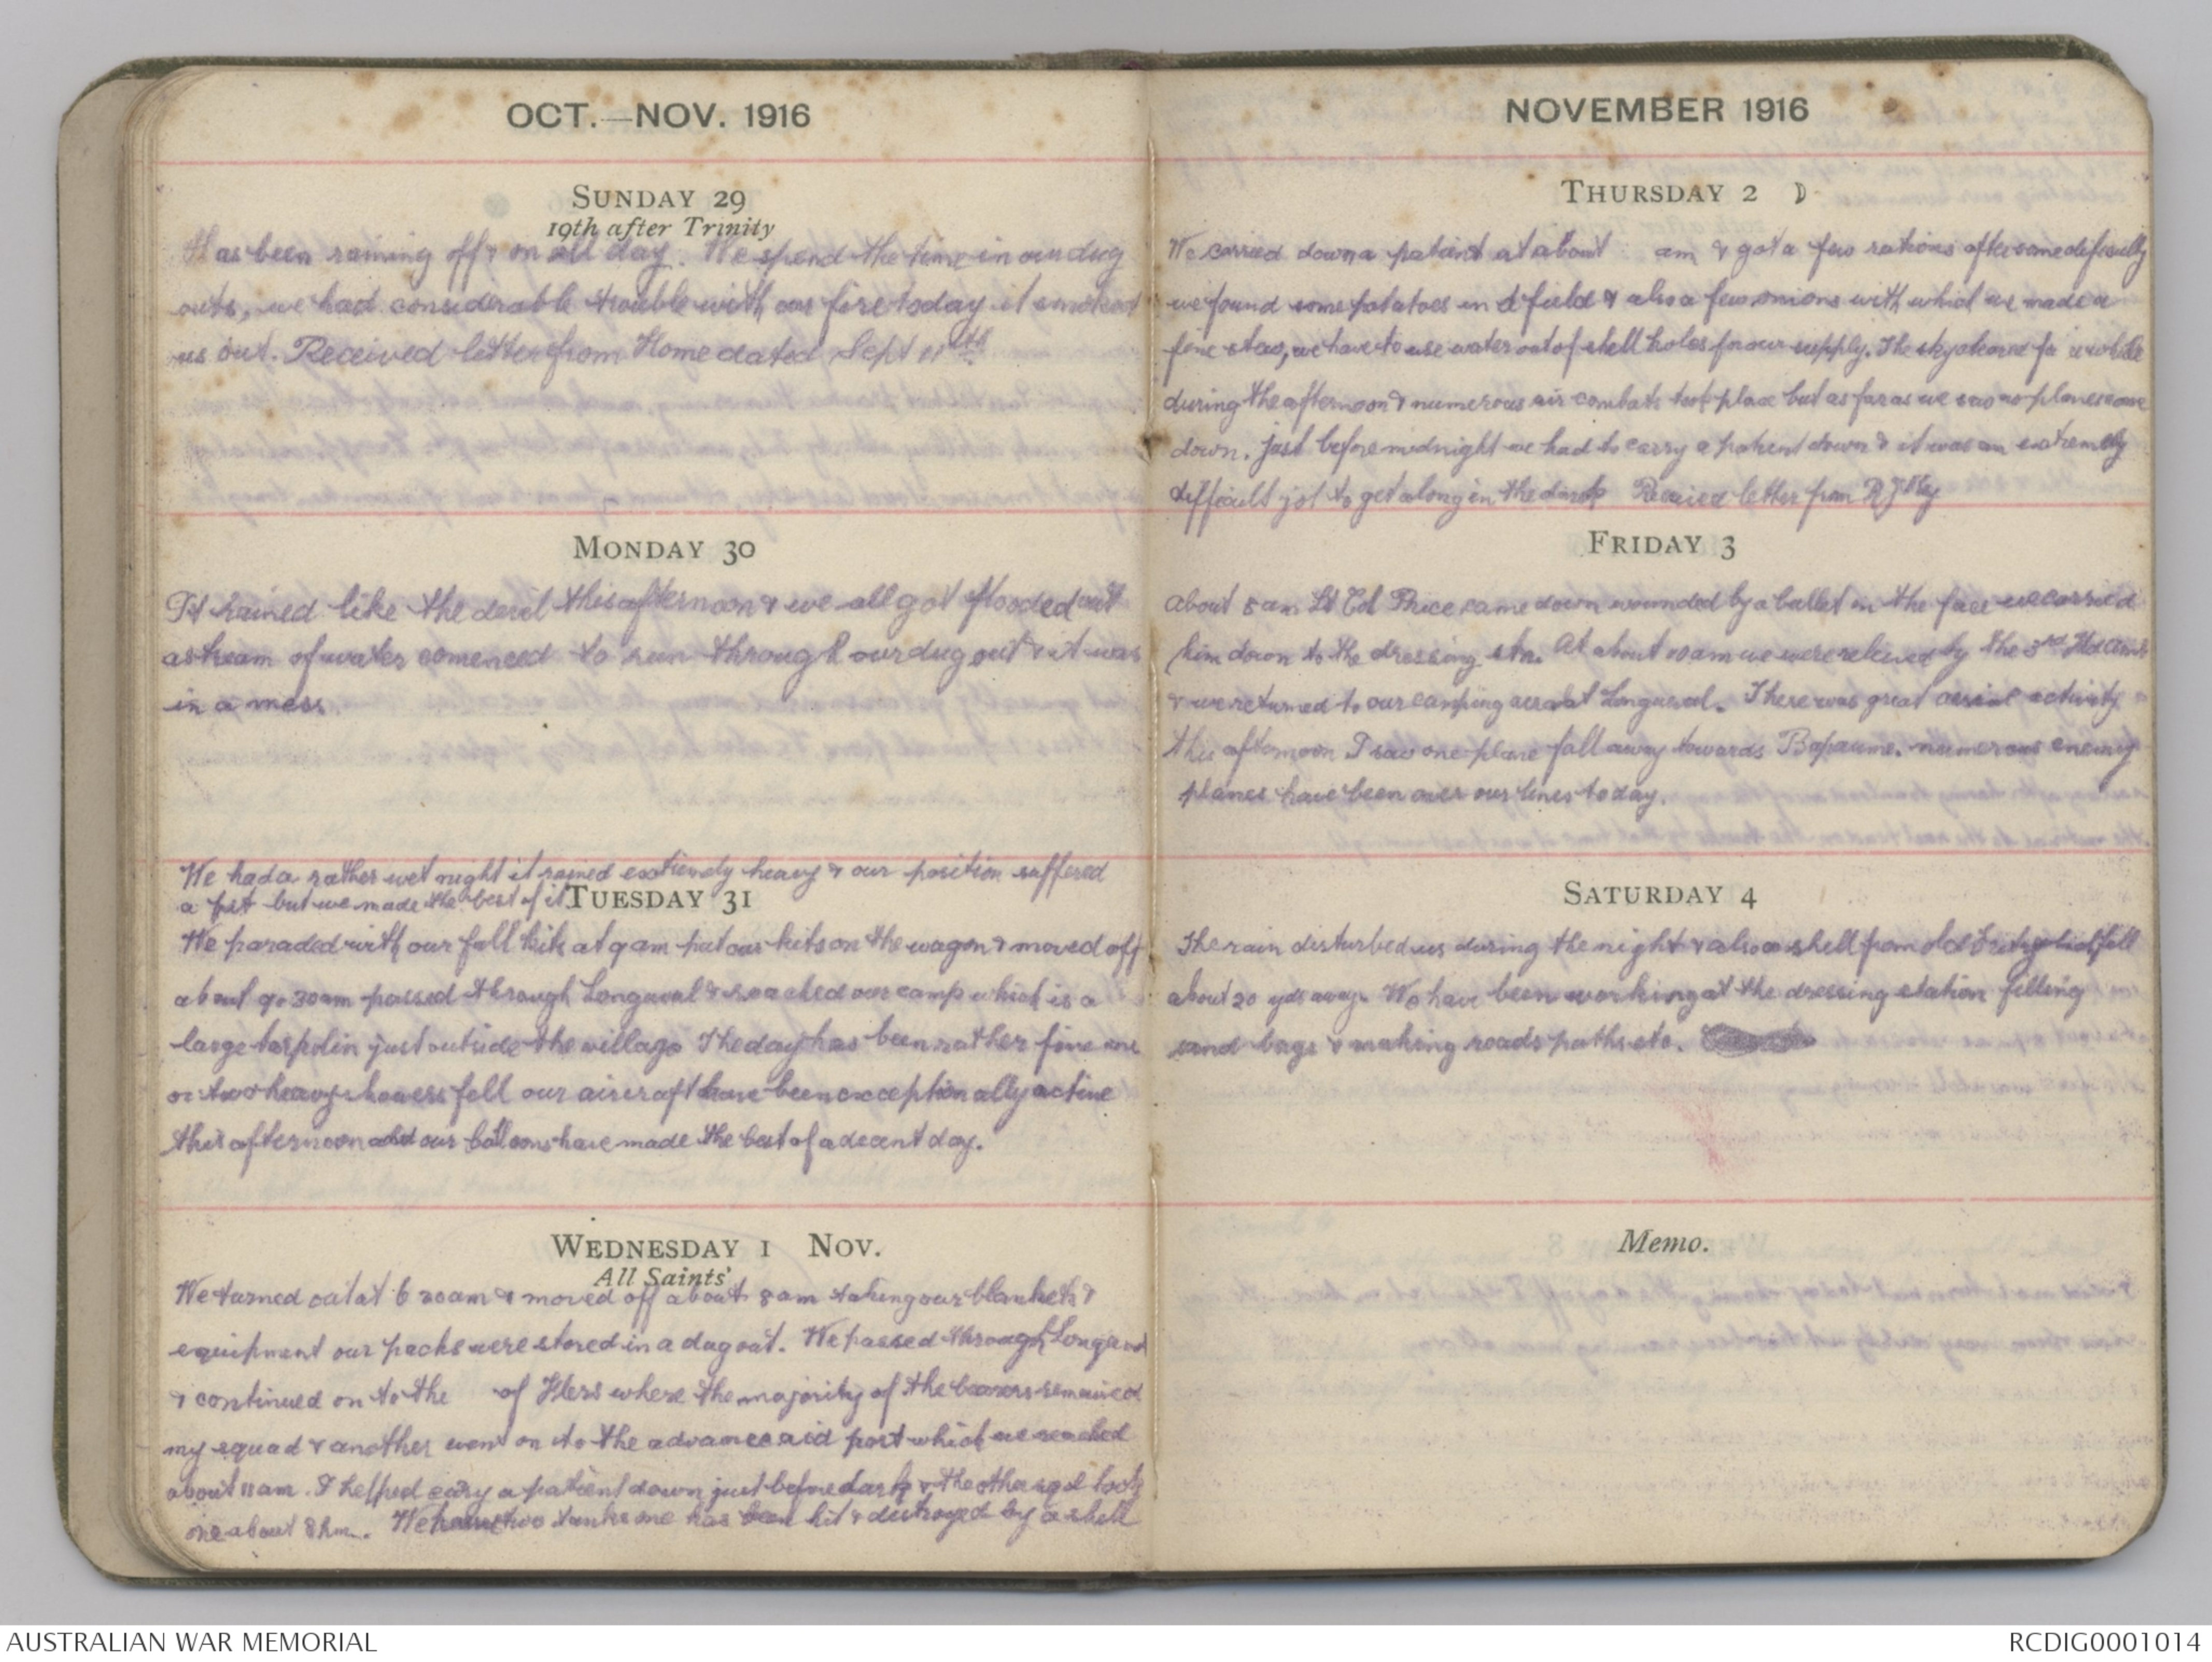 OCT.—NOV. 1916
SUNDAY 29
19th after Trinity
Has been raining off & on all day. We spend the time in our dug
outs, we had considerable trouble with our fire today it smoked
us out. Received letter from Home dated Sept 11th
MONDAY 30
It rained like the devil this afternoon & we all got flooded out
a stream of water comenced to run through our dug out & it was
in a mess.
We had a rather wet night it rained extremely heavy & our position suffered
a bit but we made the best of it
TUESDAY 31
We paraded with our full kits at 9 am put our kits on the wagon & moved off
about 9.30am passed through Longueval & reached our camp which is a
large tarpolin just outside the village The day has been rather fine one
or two heavy showers fell our aircraft have been exceptionally active
this afternoon and our baloons have made the best of a decent day.
WEDNESDAY 1 NOV.
All Saints'
We turned out at 6 30am & moved off about 8am taking our blankets &
equipment our packs were stored in a dug out. We passed through Longueval
& continued on to the of Flers where the majority of the bearers remained
my squad & another went on to the advance aid post which we reached
about 11am. I helped cary a patient down just before dark & the other sqd took
one about 8 pm. We have two tanks one has been hit & distroyed by a shell
NOVEMBER 1916
THURSDAY 2
We carried down a patient at about am & got a few rations after some dificulty
we found some potatoes in a field & also a few onions with which we made a
fine stew, we have to use water out of shell holes for our supply. The sky cleared for a while
during the afternoon & numerous air combats took place but as far as we saw no planes came
down. just before midnight we had to carry a patient down & it was an extremely
difficult job to get along in the dark Received letter from R J
FRIDAY 3
about 5 am Lt Col Price came down wounded by a bullet in the face we carried
him down to the dressing stn. At about 10 am we were relieved by the 3rd Fld Amb
& we returned to our camping area at Longueval. There was great aerial activity
this afternoon I saw one plane fall away towards Bapaume. numerous enemy
planes have been over our lines today.
SATURDAY 4
The rain disturbed us during the night & also a shell from old Fritz which fell
about 20 yds away. We have been working at the dressing station filling
sand bags & making roads paths etc.
Memo.
AUSTRALIAN WAR MEMORIAL
RCDIG0001014